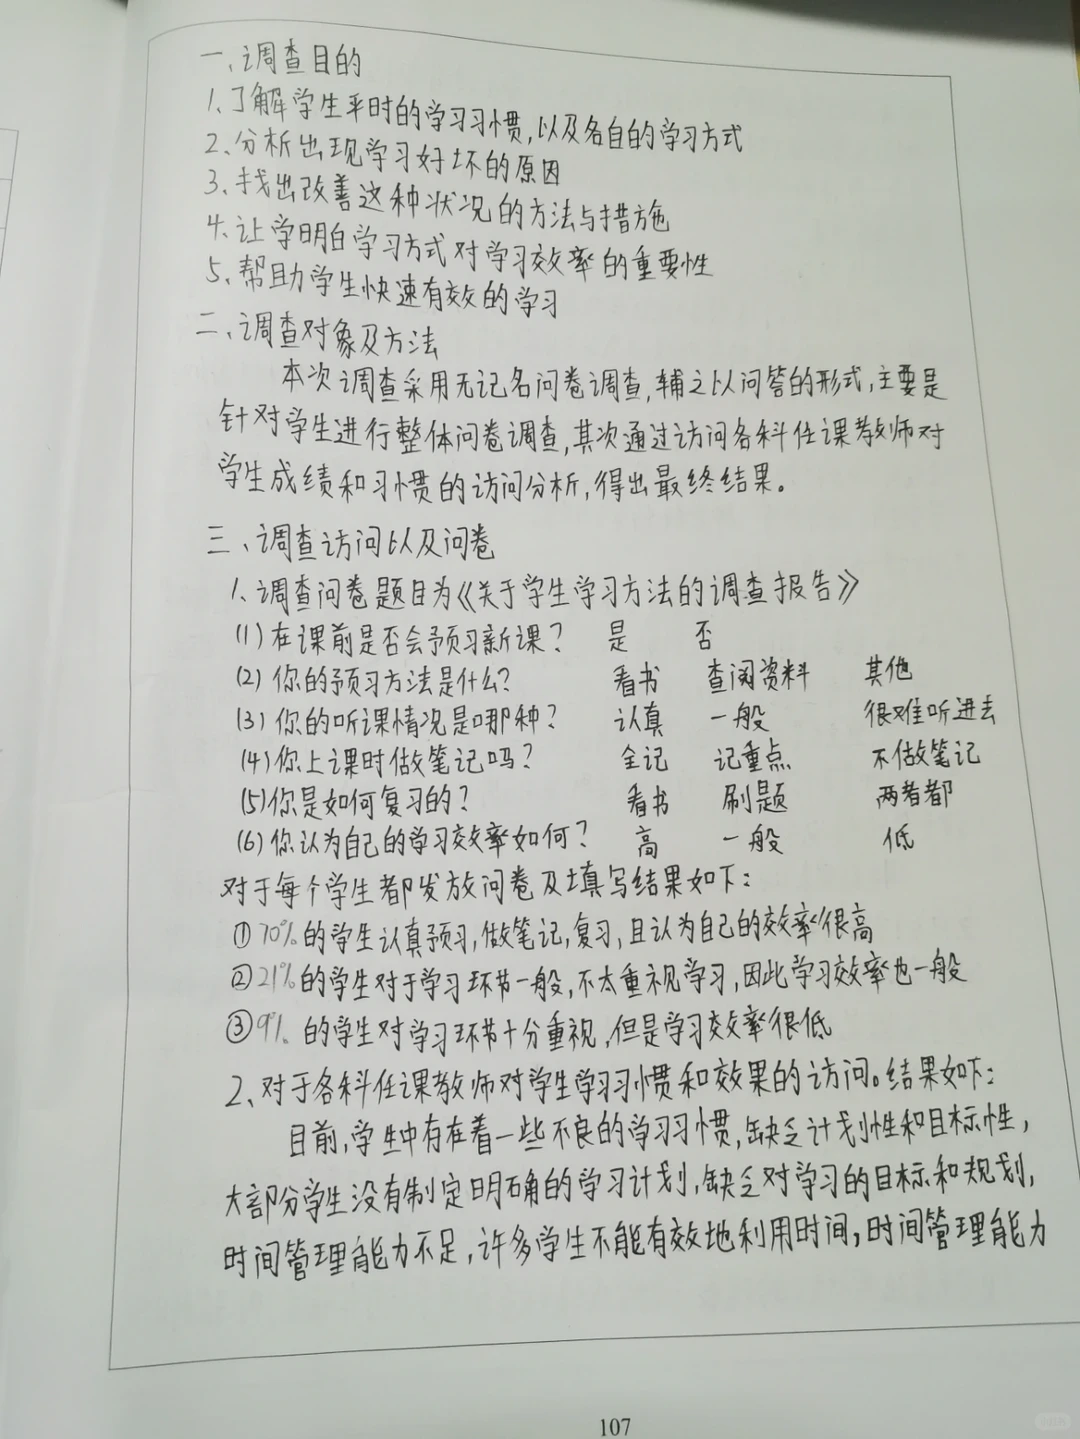 一、调查目的
1、了解学生平时的学习习惯,以及各自的学习方式
2、分析出现学习好坏的原因
3、找出改善这种状况的方法与措施
4、让学明白学习方式对学习效率的重要性
5、帮助学生快速有效的学习
二、调查对象及方法
本次调查采用无记名问卷调查,辅之以问答的形式,主要是
针对学生进行整体问卷调查,其次通过访问各科任课教师对
学生成绩和习惯的访问分析,得出最终结果。
三、调查访问以及问卷
1、调查问卷题目为《关于学生学习方法的调查报告》
(1)在课前是否会预习新课? 是 否
(2)你的预习方法是什么? 看书 查阅资料 其他
(3)你的听课情况是哪种? 认真 一般 很难听进去
(4)你上课时做笔记吗? 全记 记重点 不做笔记
(5)你是如何复习的? 看书 刷题 两者都
(6)你认为自己的学习效率如何? 高 一般 低
对于每个学生都发放问卷及填写结果如下:
①70%的学生认真预习,做笔记,复习,且认为自己的效率很高
②21%的学生对于学习环节一般,不太重视学习,因此学习效率也一般
③9%的学生对学习环节十分重视,但是学习效率很低
2、对于各科任课教师对学生学习习惯和效果的访问。结果如下:
目前,学生中存在着一些不良的学习习惯,缺乏计划性和目标性,
大部分学生没有制定明确的学习计划,缺乏对学习的目标和规划,
时间管理能力不足,许多学生不能有效地利用时间,时间管理能力
107